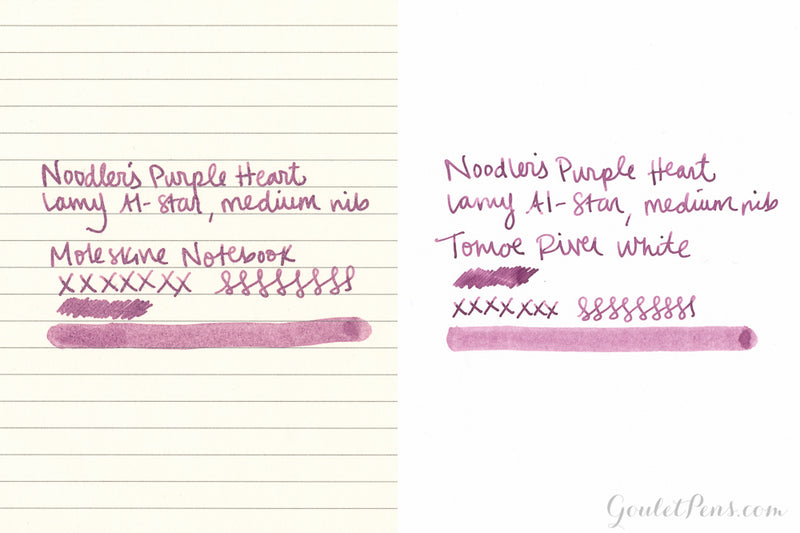 Noodler's Purple Heart
Lamy Al-Star, medium nib
Moleskine Notebook
xxxxxxx ssssssss
Noodler's Purple Heart
Lamy Al-Star, medium nib
Tomoe River White
xxxxxxx sssssssss
GouletPens.com